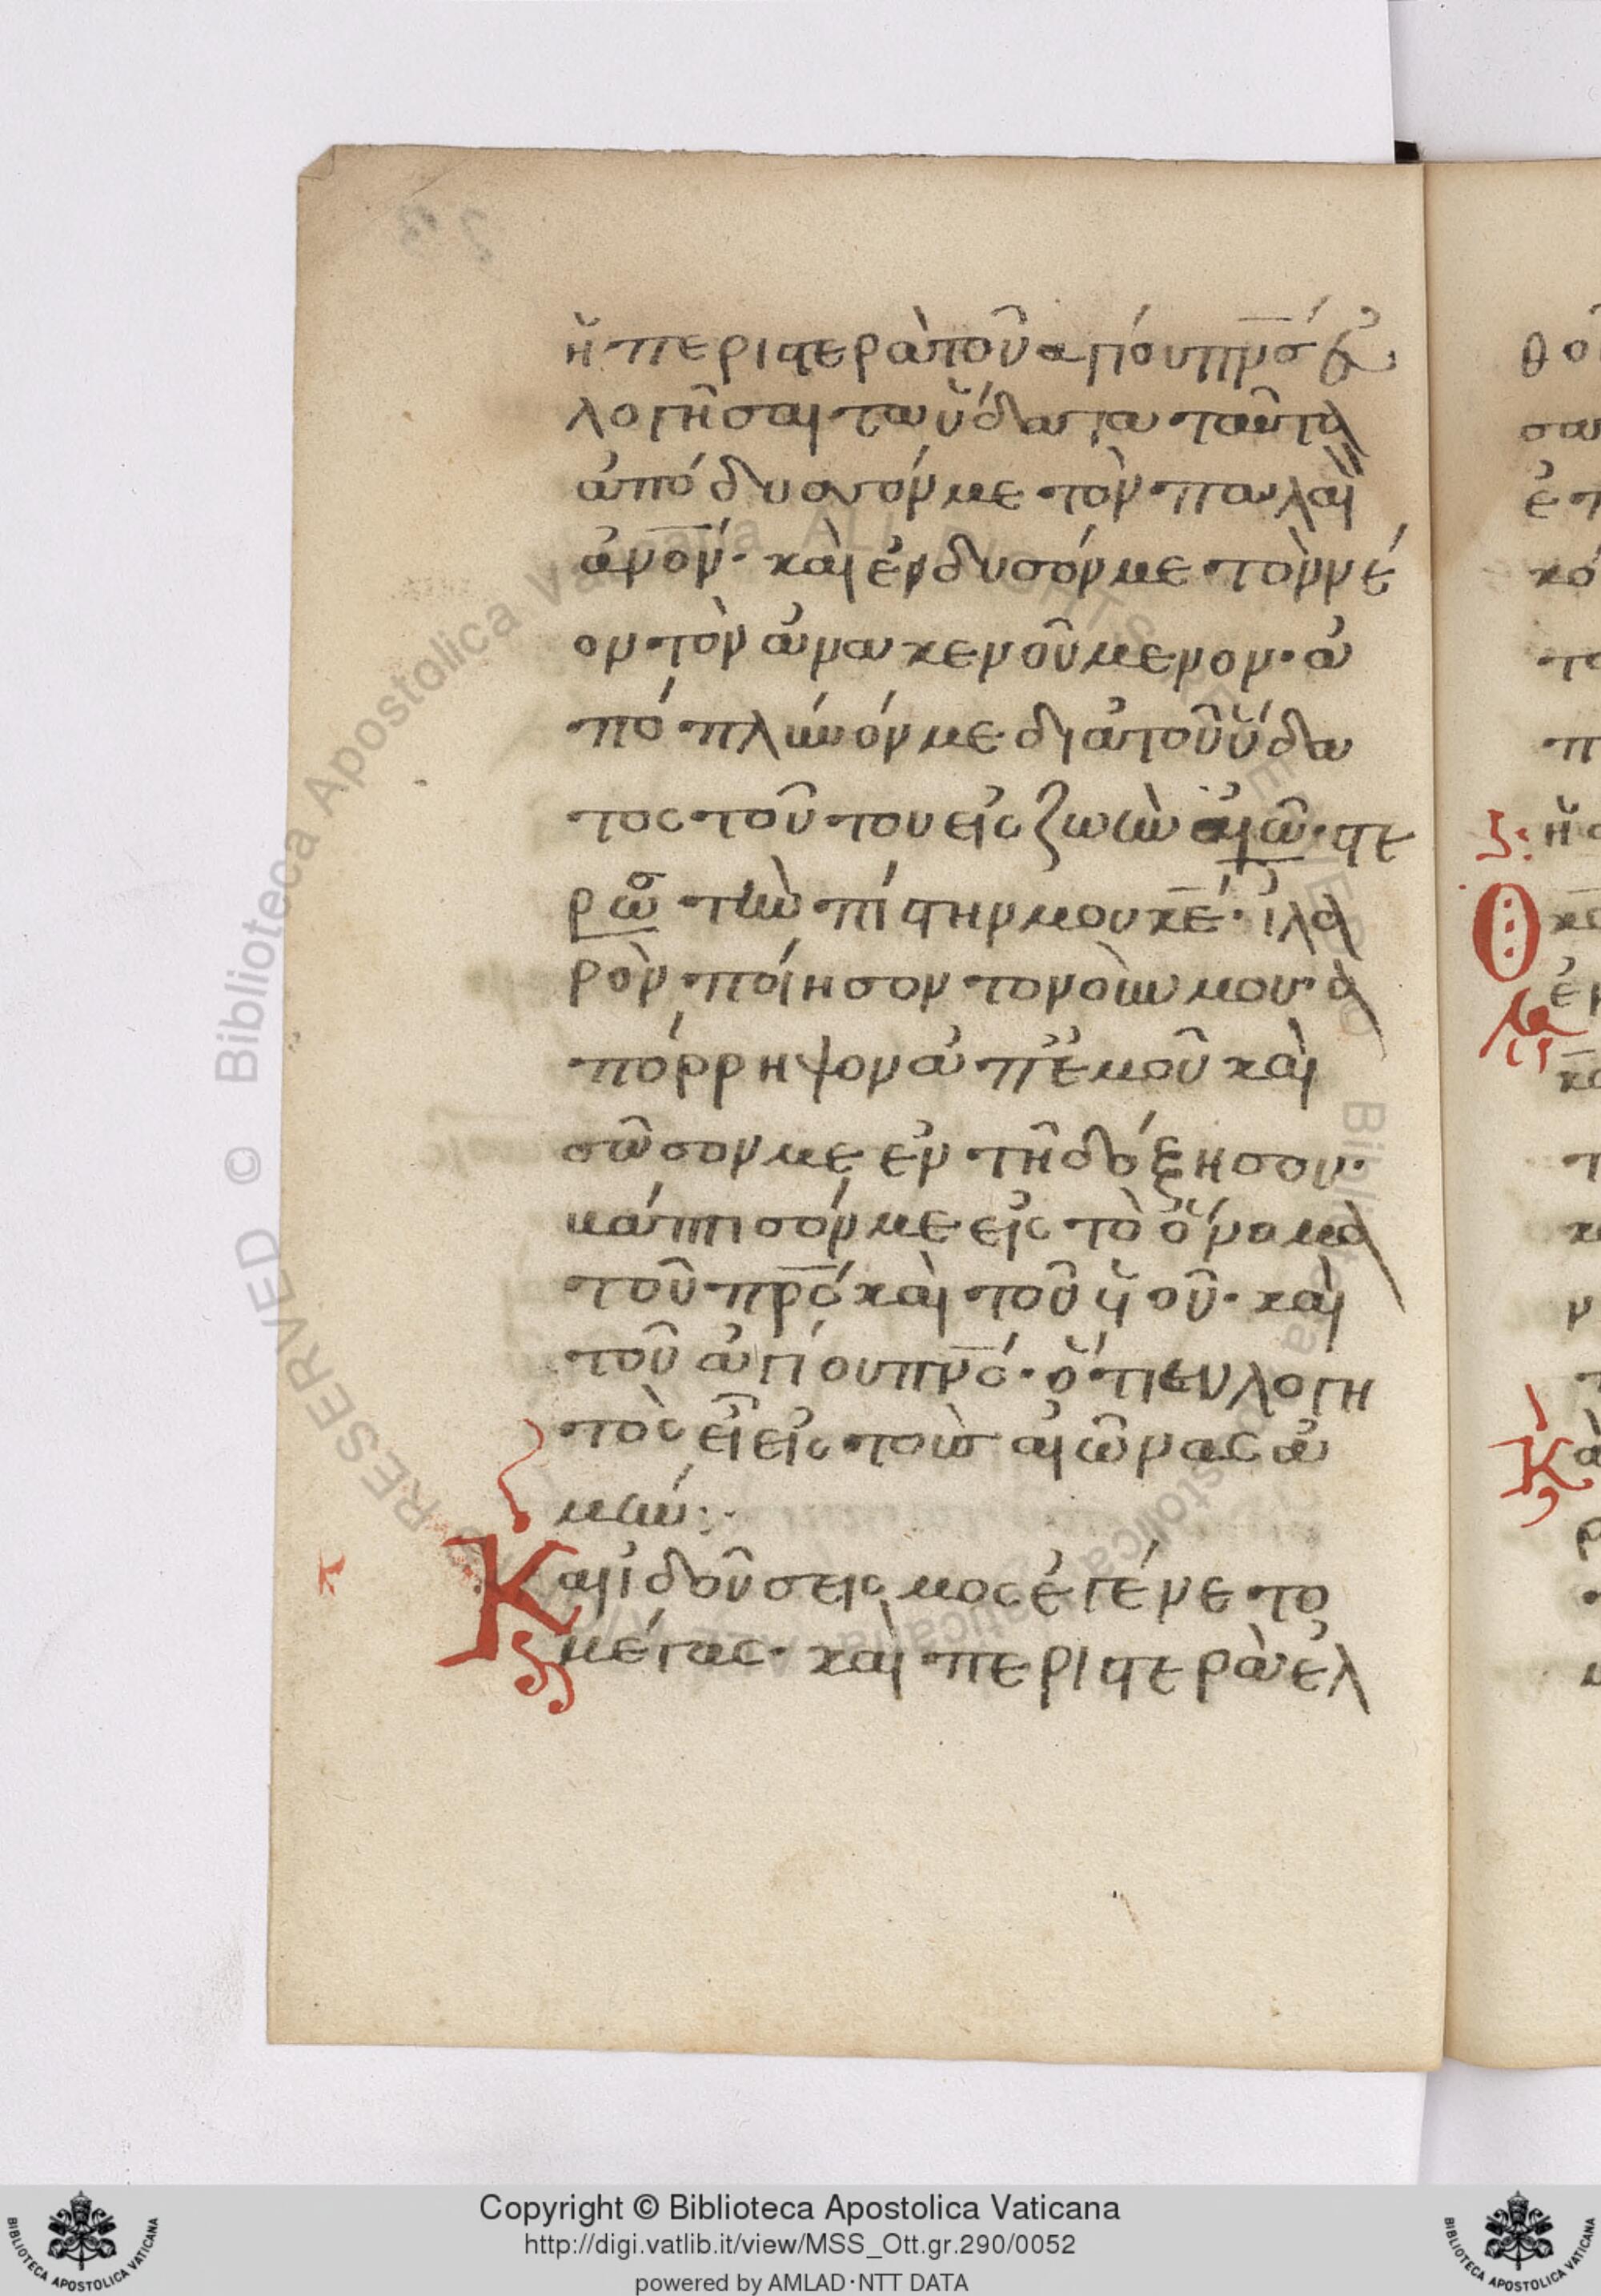 ἡ περιστερὰ τοῦ ἁγίου πν̅σ́ εὐ
λογῆσαι τα ὕδατα ταῦτα
ἀπόδυσόν με τὸν παλαὶ
ἀν̅ον́· καὶ ἐνδυσόν με τὸν νέ
ον τὸν ἀνακενοῦμενον· ἀ
πόπλυνόν με διὰ τοῦ ὕδα
τος τοῦτου εἰς ζωὴν αἰῶ· στε
ρῶσ τὴν πίστην μου κ̅έ· ἱλα
ρὸν ποίησον τον οὖν μου ἀ
πόρρηψον ἀπ' ἐμοῦ καὶ
σῶσον με ἐν τῆ δόξη σου·
βάπτισόν με εἰς τὸ ὄνομα
τοῦ πρ̅ς́ καὶ τοῦ ὑιοῦ· καὶ
τοῦ ἁγίου πν̅ς́· ὅτι ευλογη
τὸς εἶ εἰς τοὺσ αἰῶνας ἀ
μήν:·
Και ϊδοῦ σεισμος ἐγένετο
μέγας· καὶ περιστερὰ ἐλ
θο
σα
ἐ
κό
το
π
ἡ
Κὰ
Copyright © Biblioteca Apostolica Vaticana
http://digi.vatlib.it/view/MSS_Ott.gr.290/0052
powered by AMLAD·NTT DATA
BIBLIOTECA APOSTOLICA VATICANA
BIBLIOTECA APOSTOLICA VATICANA